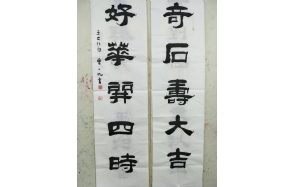 奇石壽大吉
好華開四時